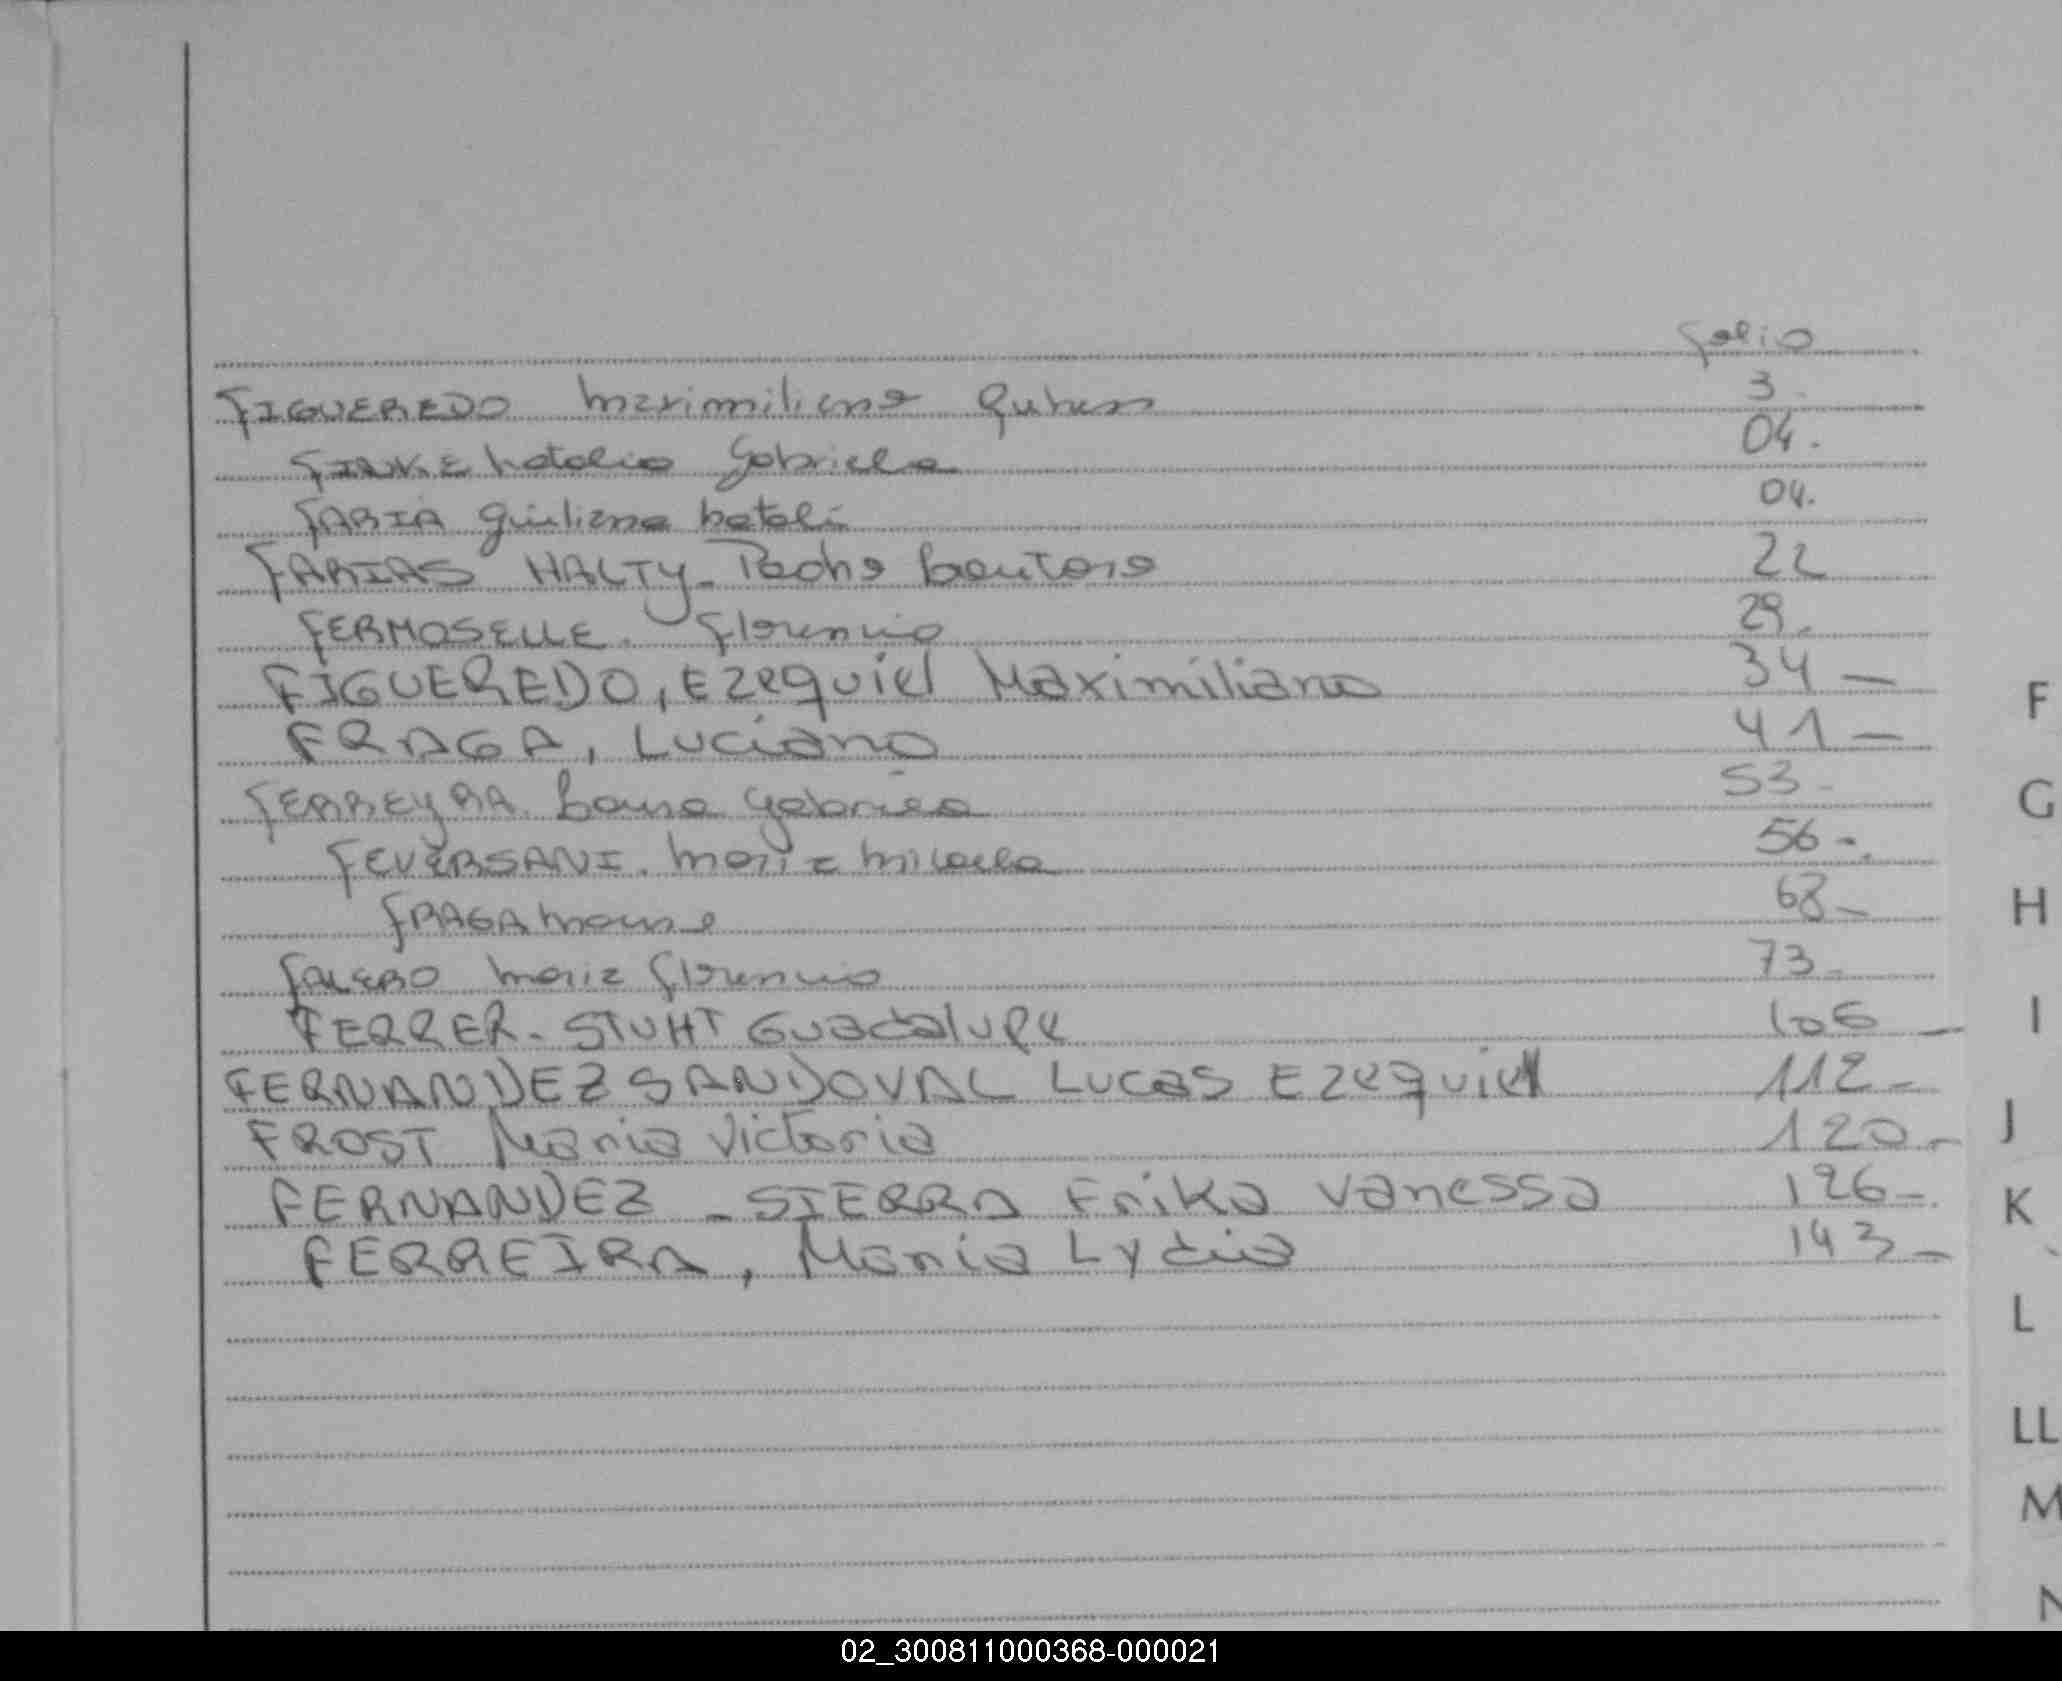 folio
FIGUEREDO Maximiliano Ruben 3.
FINKE Natalia Gabriela 04.
FARIA Giuliana Natali 04.
FARIAS HALTY Pedro Lautaro 22
FERMOSELLE. Florencia 29.
FIGUEREDO, Ezequiel Maximiliano 34 —
FRAGA, Luciano 41 —
FERREYRA Laura Gabriela 53 -
FEVERSANI. Maria Micaela 56 -.
FRAGA 68 -
FALERO Maria Florencia 73 -
FERRER - STUHT Guadalupe 106 —
FERNANDEZ SANDOVAL Lucas Ezequiel 112 -
FROST Maria Victoria 120 -
FERNANDEZ - SIERRA Erika Vanessa 126 -
FERREIRA, Maria Lydia 143 -
F
G
H
I
J
K
L
LL
M
N
02_300811000368-000021